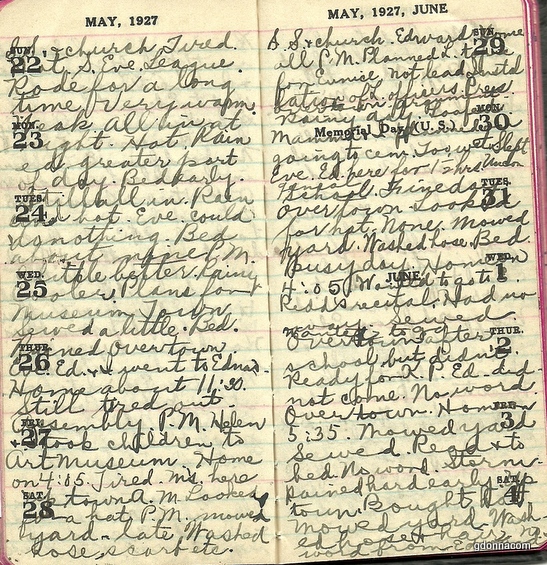 MAY, 1927
SUN. 22
S.S. & church. Tired.
S. Eve. League.
Rode for a long
time. Very warm.
MON. 23
Weak all in at
night. Hot. Rain
ed greater part
of day. Bed early.
TUES. 24
Still all in. Rain
hot. Eve. could
do nothing. Bed
about
WED. 25
little better. Rainy
cooler. Plans for
Museum. Town
Sewed a little. Bed.
THUR. 26
overtown
Ed. & I went to Edna's.
Home about 11:30.
Still tired out
FRI. 27
Assembly. P.M. Helen
& I took children to
Art Museum. Home
on 4:05. Tired. here
SAT. 28
town A.M. Looked
for a hat. P.M. mowed
yard - late. Washed
hose, scarf etc.
MAY, 1927, JUNE
SUN. 29
S.S. & church. Edward
ill P.M. Planned L.
for Eunice, not lead. Instal
lation of officers.
MON. 30
Memorial Day (U.S.)
Rainy day.
Mamma
going to cem. Too wet. Slept
Eve. Ed. here for 1 2 hrs.
TUES. 31
school. Tired
Overtown. Looked
for hat. None. Mowed
yard. Washed hose. Bed.
WED. 1
JUNE
Busy day. Home on
4:05. to go to
recital. Had no
way to go. Sewed
THUR. 2
Overtown after
school, but didn't
Ready for K.P. Ed. did
not come. No word.
FRI. 3
Overtown. Home on
5:35. Mowed yard
Sewed. Read & to
bed. No word. Storm
SAT. 4
Rained hard early
town. Bought hat
Mowed yard. Wash-
ed hose & hair. No
word from Ed.
gdonnacom